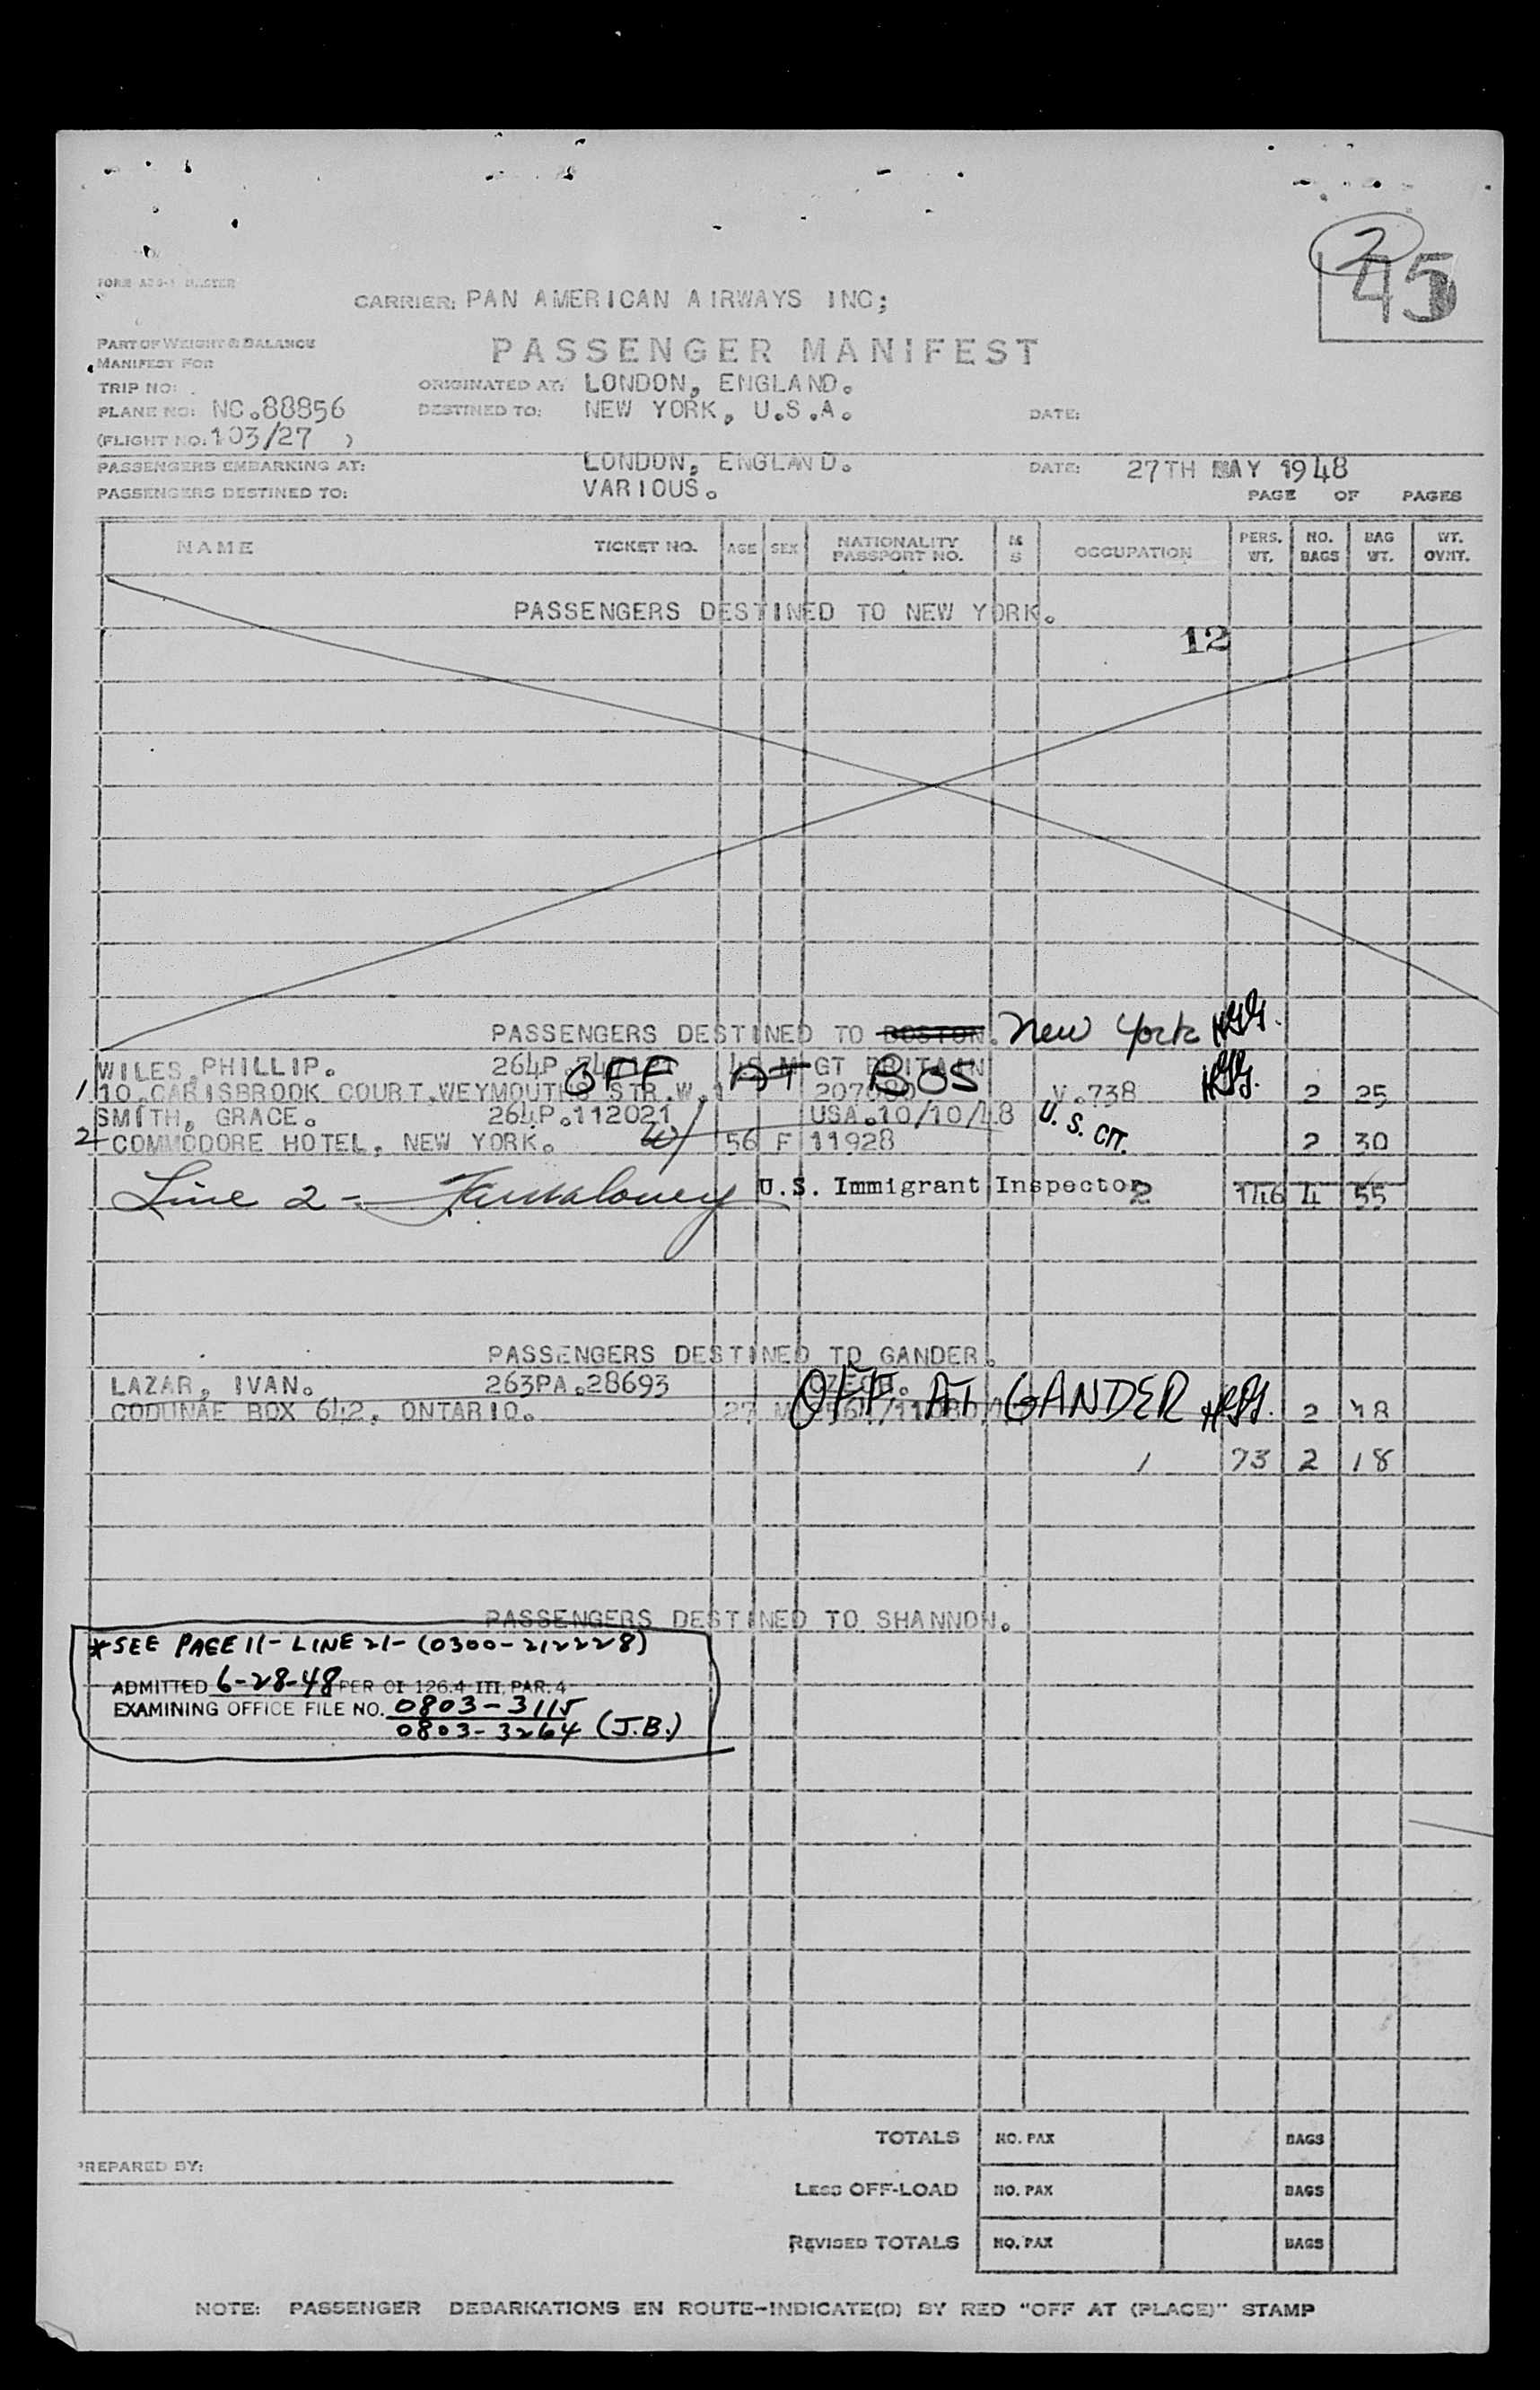 2
45
CARRIER: PAN AMERICAN AIRWAYS INC;
PART OF WEIGHT & BALANCE
MANIFEST FOR
PASSENGER MANIFEST
TRIP NO:
ORIGINATED AT: LONDON, ENGLAND.
PLANE NO: NC.88856
DESTINED TO: NEW YORK, U.S.A.
DATE:
(FLIGHT NO: 103/27 )
PASSENGERS EMBARKING AT: LONDON, ENGLAND. DATE: 27TH MAY 1948
PASSENGERS DESTINED TO: VARIOUS.
PAGE OF PAGES
NAME TICKET NO. AGE SEX NATIONALITY PASSPORT NO. M S OCCUPATION PERS. WT. NO. BAGS BAG WT. WT. OVHT.
PASSENGERS DESTINED TO NEW YORK.
12
PASSENGERS DESTINED TO BOSTON. New York
WILES, PHILLIP. 264P. M GT BRITAIN
OFF AT BOS
1 10, CARISBROOK COURT, WEYMOUTH STR. W.1 V.738 2 25
SMITH, GRACE. 264P.112021 USA.10/10/48 U.S. CIT.
2 COMMODORE HOTEL, NEW YORK. 56 F 11928 2 30
Line 2 - U.S. Immigrant Inspector 2 146 4 55
PASSENGERS DESTINED TO GANDER.
LAZAR, IVAN. 263PA.28693 CZECH.
OFF AT GANDER
CODUNAE BOX 642, ONTARIO. 27 M 2 18
1 73 2 18
PASSENGERS DESTINED TO SHANNON.
*SEE PAGE 11 - LINE 21 - (0300-212228)
ADMITTED 6-28-48 PER OI 126.4 III, PAR. 4
EXAMINING OFFICE FILE NO. 0803-3115
0803-3264 (J.B.)
TOTALS NO. PAX BAGS
PREPARED BY:
LESS OFF-LOAD NO. PAX BAGS
REVISED TOTALS NO. PAX BAGS
NOTE: PASSENGER DEBARKATIONS EN ROUTE-INDICATE(D) BY RED "OFF AT (PLACE)" STAMP